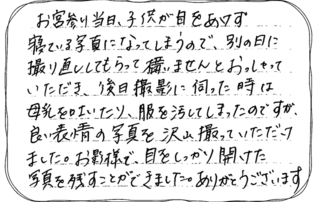 お宮参り当日、子供が目をあけず
寝ている写真になってしまうので、別の日に
撮り直ししてもらって構いませんとおっしゃって
いただき、後日撮影に伺った時は
母乳を吐いたり、服を汚してしまったのですが、
良い表情の写真を沢山撮っていただけ
ました。お影様で、目をしっかり開けた
写真を残すことができました。ありがとうございます